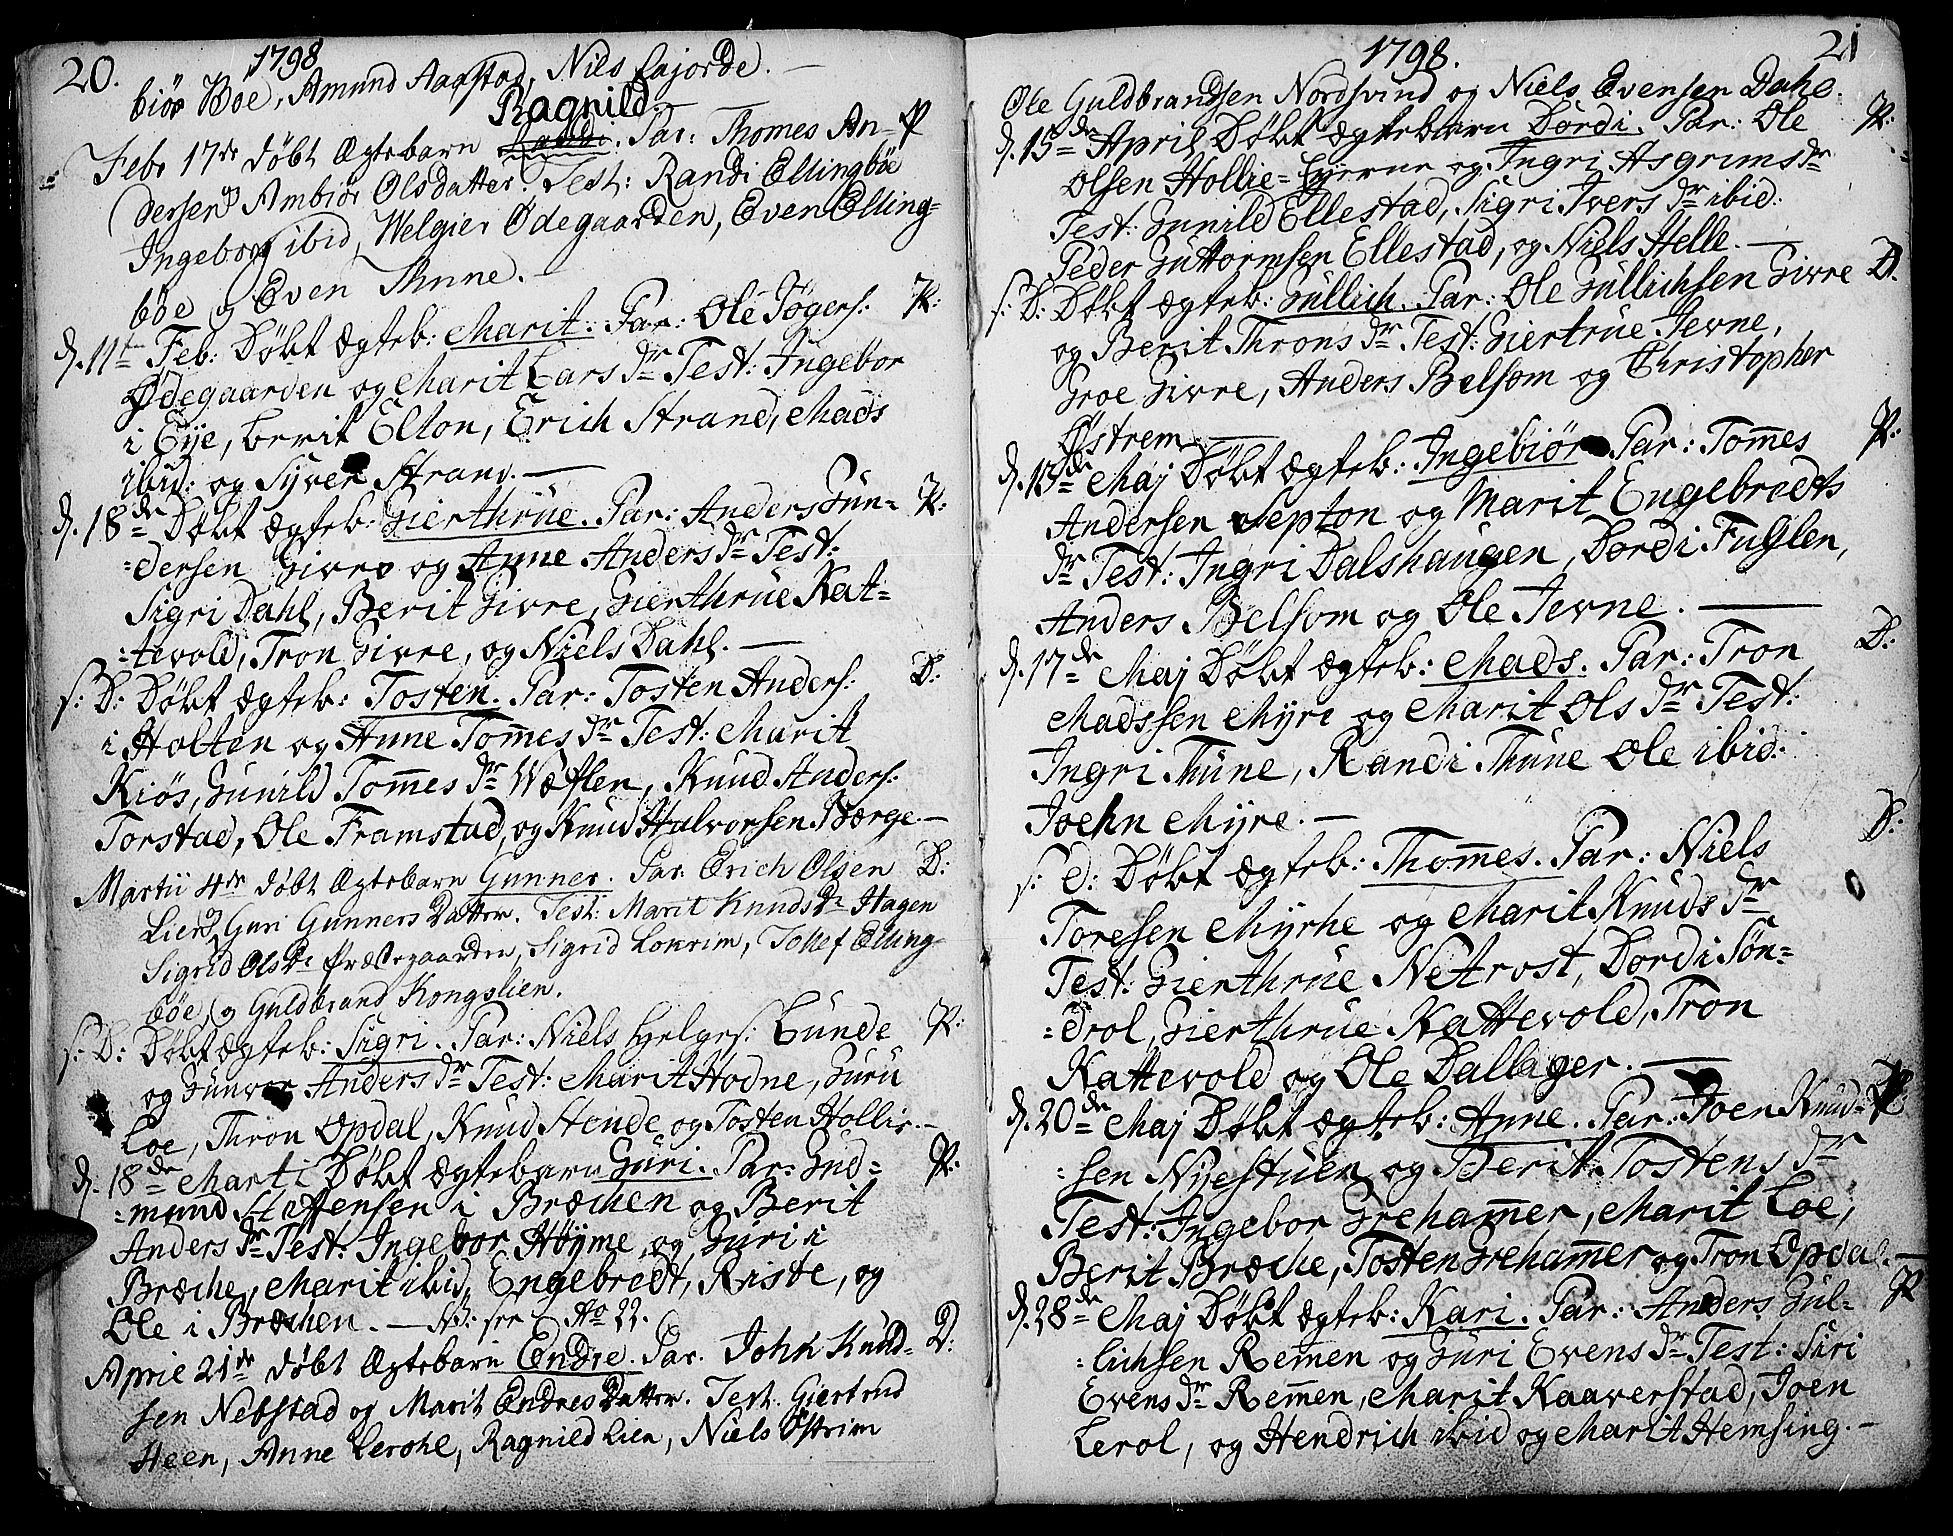 20. 1798
biør Boe, Amund Aagstad, Nils Lajorde. —
Ragnild
Febr 17de døbt Ægtebarn Par: Thomes An- P
dersen og Ambiør Olsdatter. Test: Randi Ellingbøe
Ingeborg ibid, Welgier Ødegaarden, Even Elling=
bøe og Even Thune. —
d. 11te Feb: Døbt ægteb: Marit. Par: Ole Tøgers: P:
Ødegaarden og Marit Lars Dr Test: Ingebor
i Eye, Berit Elton, Erich Strand, Mads
ibid: og Syver Strand. —
d. 18de Døbt ægteb: Gierthrue. Par: Anders Gun= P:
=dersen Givre og Anne Anders Dr Test:
Sigri Dahl, Berit Givre, Gierthrue Kat=
=tevold, Tron Givre, og Niels Dahl. —
s: D: Døbt ægteb: Tosten. Par: Tosten Anders: D:
i Holten og Anne Tom̄es Dr Test: Marit
Kiøs, Gunild Tom̄es Dr Wæflen, Knud Anders:
Torstad, Ole Framstad, og Knud Halvorsen Børge. —
Martii 4de døbt Ægtebarn Gunner. Par: Erich Olsen D:
Lien og Guri Gunners Datter. Test: Marit Knuds Dr Hagen
Sigrid Ols Dr Præstegaarden, Sigrid Lokrim, Tollef Elling=
bøe, og Guldbrand Kongslien.
s: D: Døbt ægteb: Sigri. Par: Niels Helges: Lunde P:
og Gunvor Anders Dr Test: Marit Hodne, Guru
Loe, Thron Opdal, Knud Hende og Tosten Hollie. —
d. 18de Marti Døbt ægtebarn Guri. Par: Gud= P:
=mund Steffensen i Bræchen og Berit
Anders Dr Test: Ingebor Høyme, og Guri i
Bræche, Marit ibid, Engebredt, Riste, og
Ole i Bræchen. — NB: see No 22.
April 21de døbt Ægtebarn Endre. Par. John Knud= D:
sen Nebstad og Marit Endres Datter. Test. Giertrud
Heen, Anne Lerohl, Ragnild Lien, Niels Østrim
1798. 21
Ole Guldbrandsen Nordsvind og Niels Evensen Dahl.
d. 15de April Døbt ægtebarn Dordi. Par: Ole P:
Olsen Hollie=Eyerne og Ingri Asgrims Dr
Test: Gunild Ellestad, Sigri Ivers Dr ibid.
Peder Guttormsen Ellestad, og Niels Helle. —
s: D: Døbt ægteb: Gullich. Par: Ole Gullichsen Givre D.
og Berit Throns Dr Test: Giertrue Jevne,
Groe Givre, Anders Belsom og Christopher
Østrem —
d. 13de Maj Døbt ægteb: Ingebiør Par: Tom̄es P:
Andersen Septon og Marit Engebredts
Dr Test: Ingri Dalshaugen, Dordi Fuglen,
Anders Belsom og Ole Jevne. —
d. 17de Maj Døbt ægteb: Mads. Par: Tron D:
Madssen Myre og Marit Ols Dr Test:
Ingri Thune, Randi Thune Ole ibid:
Joehn Myre. —
s: D: Døbt ægteb: Thom̄es. Par: Niels D:
Toresen Myrhe og Marit Knuds Dr
Test: Gierthrue Netrost, Dordi Søn=
=drol, Gierthrue Kattevold, Tron
Kattevold og Ole Dallager. —
d. 20de Maj Døbt ægteb: Anne. Par: Joen Knud= P:
=sen Nyestuen og Berit Tostens Dr
Test: Ingebor Greham̄er, Marit Loe,
Berit Bræche, Tosten Greham̄er og Tron Opdal. —
d. 28de Maj Døbt ægteb: Kari. Par: Anders Gul= P
=lichsen Rem̄en og Guri Evens Dr Test: Siri
Evens Dr Rem̄en, Marit Kaaverstad, Joen
Lerol, og Hendrich ibid og Marit Hemsing. —